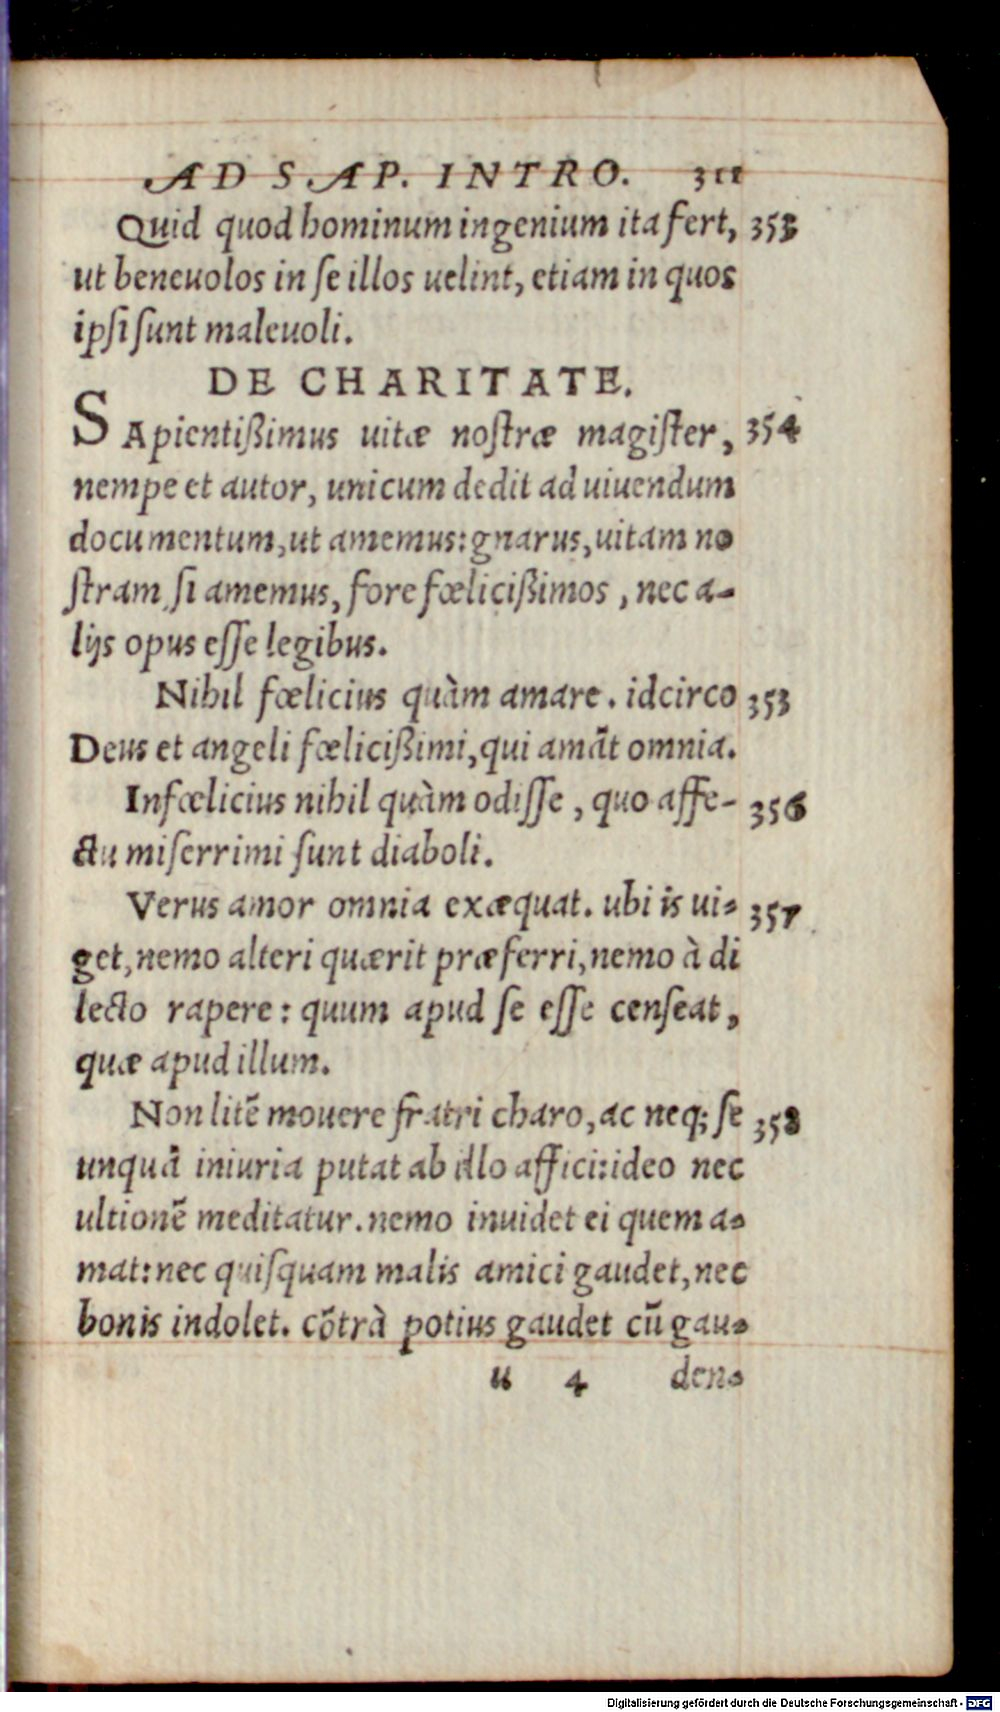 AD SAP. INTRO. 311
Quid quod hominum ingenium ita fert, 353
ut beneuolos in se illos uelint, etiam in quos
ipsi sunt maleuoli.
DE CHARITATE.
SApientißimus uitæ nostræ magister, 354
nempe et autor, unicum dedit ad uiuendum
documentum, ut amemus: gnarus, uitam no
stram, si amemus, fore fœlicißimos, nec a-
lijs opus esse legibus.
Nihil fœlicius quàm amare. idcirco 353
Deus et angeli fœlicißimi, qui amãt omnia.
Infœlicius nihil quàm odisse, quo affe- 356
ctu miserrimi sunt diaboli.
Verus amor omnia exæquat. ubi is ui- 357
get, nemo alteri quærit præferri, nemo à di
lecto rapere: quum apud se esse censeat,
quæ apud illum.
Non litẽ mouere fratri charo, ac neq; se 358
unquã iniuria putat ab illo affici: ideo nec
ultionẽ meditatur. nemo inuidet ei quem a-
mat: nec quisquam malis amici gaudet, nec
bonis indolet. cõtrà potius gaudet cũ gau-
u 4 den-
Digitalisierung gefördert durch die Deutsche Forschungsgemeinschaft - DFG